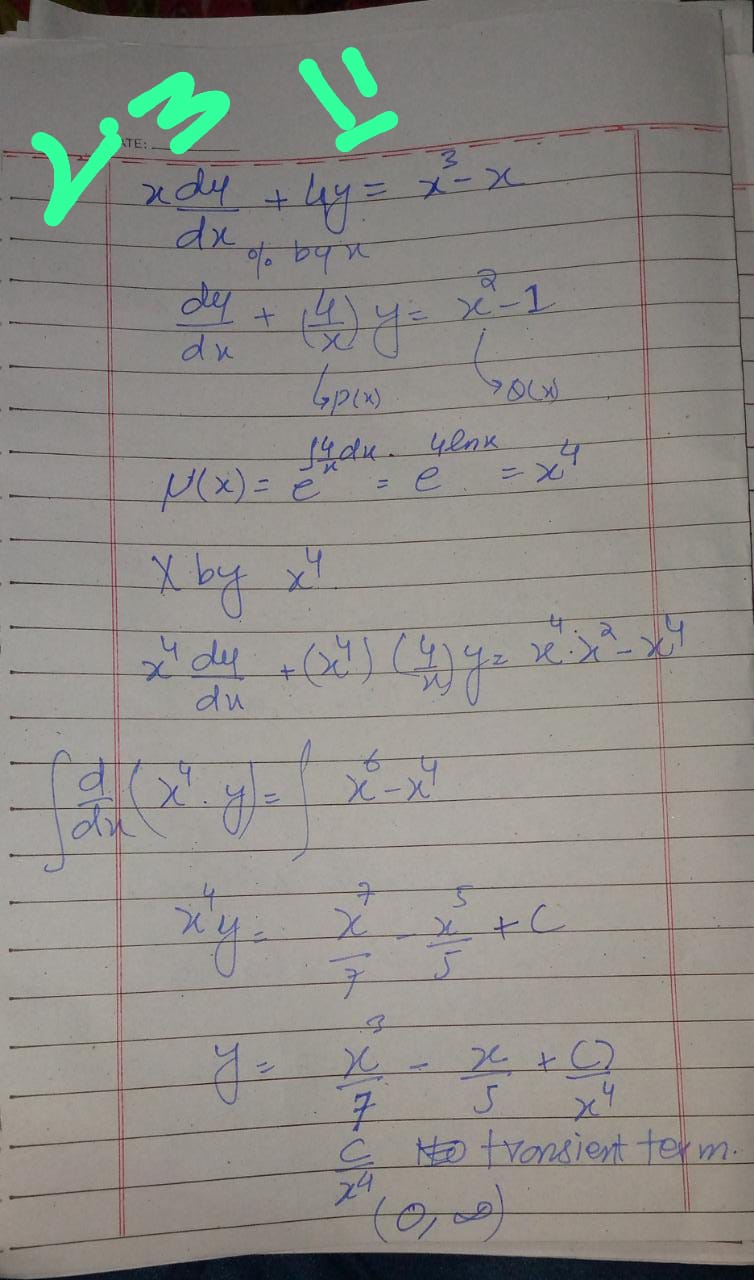 2.3 11
DATE:
x dy/dx + 4y = x³ - x
% by x
dy/dx + (4/x) y = x² - 1
↳ P(x) ↳ Q(x)
μ(x) = e^∫4/x dx. = e^4lnx = x⁴
X by x⁴.
x⁴ dy/dx + (x⁴) (4/x) y = x⁴·x² - x⁴
∫ d/dx (x⁴·y) = ∫ x⁶ - x⁴
x⁴y = x⁷/7 - x⁵/5 + C
y = x³/7 - x/5 + C/x⁴
C/x⁴ transient term.
(0, ∞)